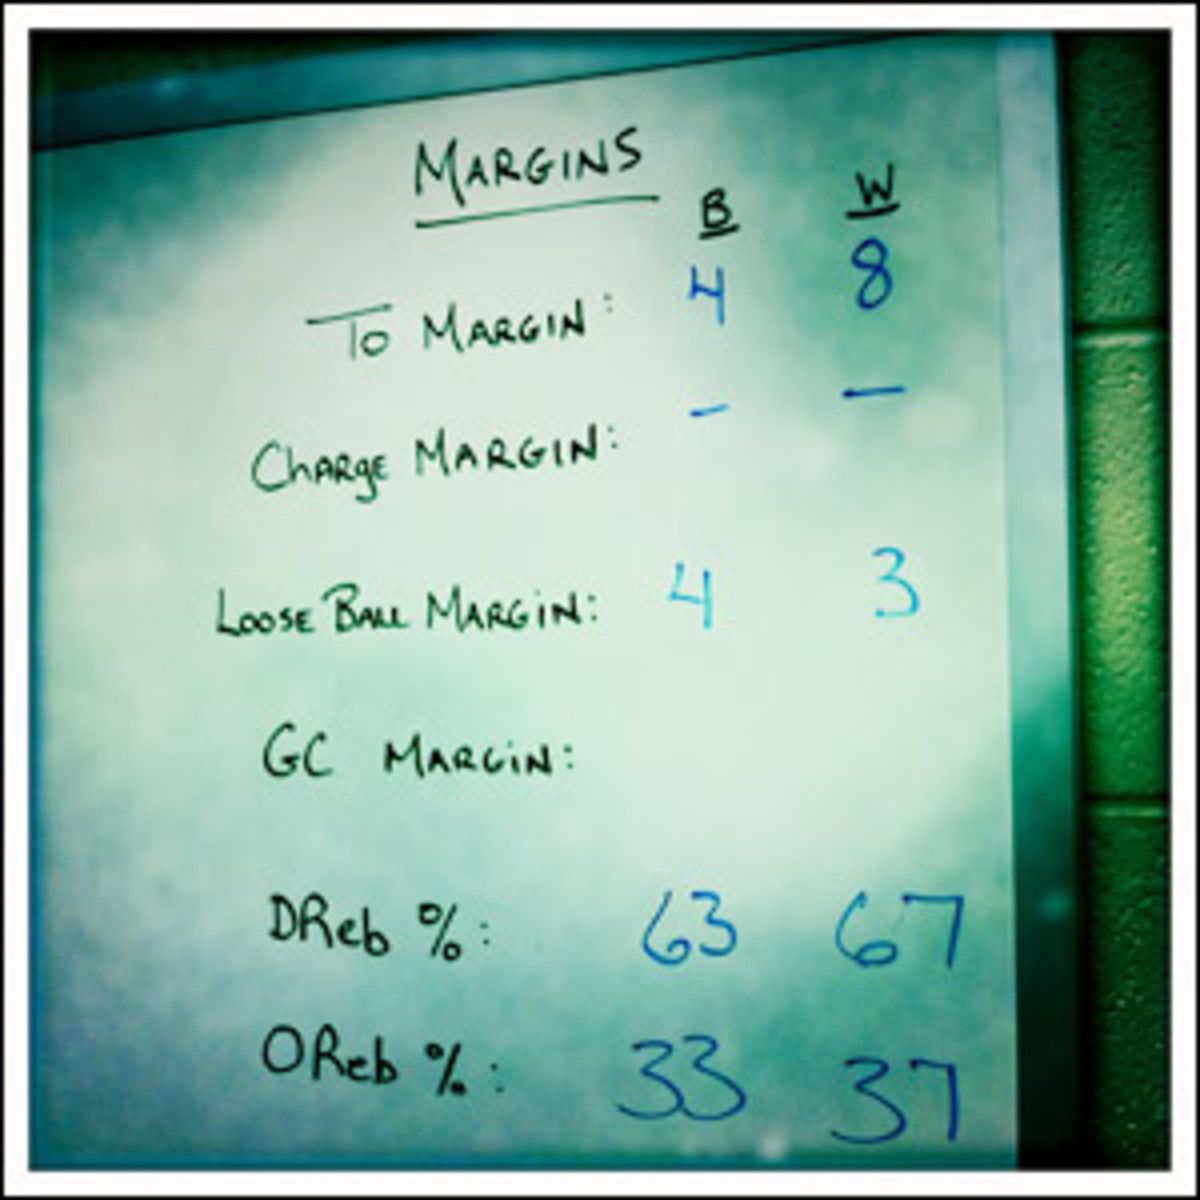 MARGINS
B W
TO MARGIN: 4 8
CHARGE MARGIN: – –
LOOSE BALL MARGIN: 4 3
GC MARGIN:
DReb %: 63 67
OReb %: 33 37